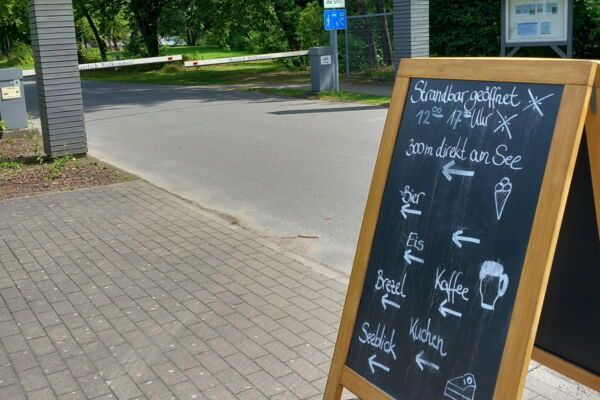 Strandbar geöffnet
12 00 17 00 Uhr
300m direkt am See
Bier
Eis
Brezel
Kaffee
Seeblick
Kuchen